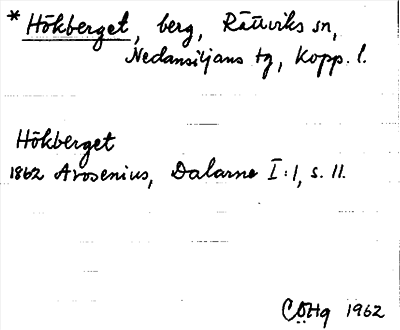 * Hökberget, berg, Rättviks sn,
Nedansiljans tg, Kopp. l.
Hökberget
1862 Arosenius, Dalarne I:1, s. 11.
CÖHg 1962